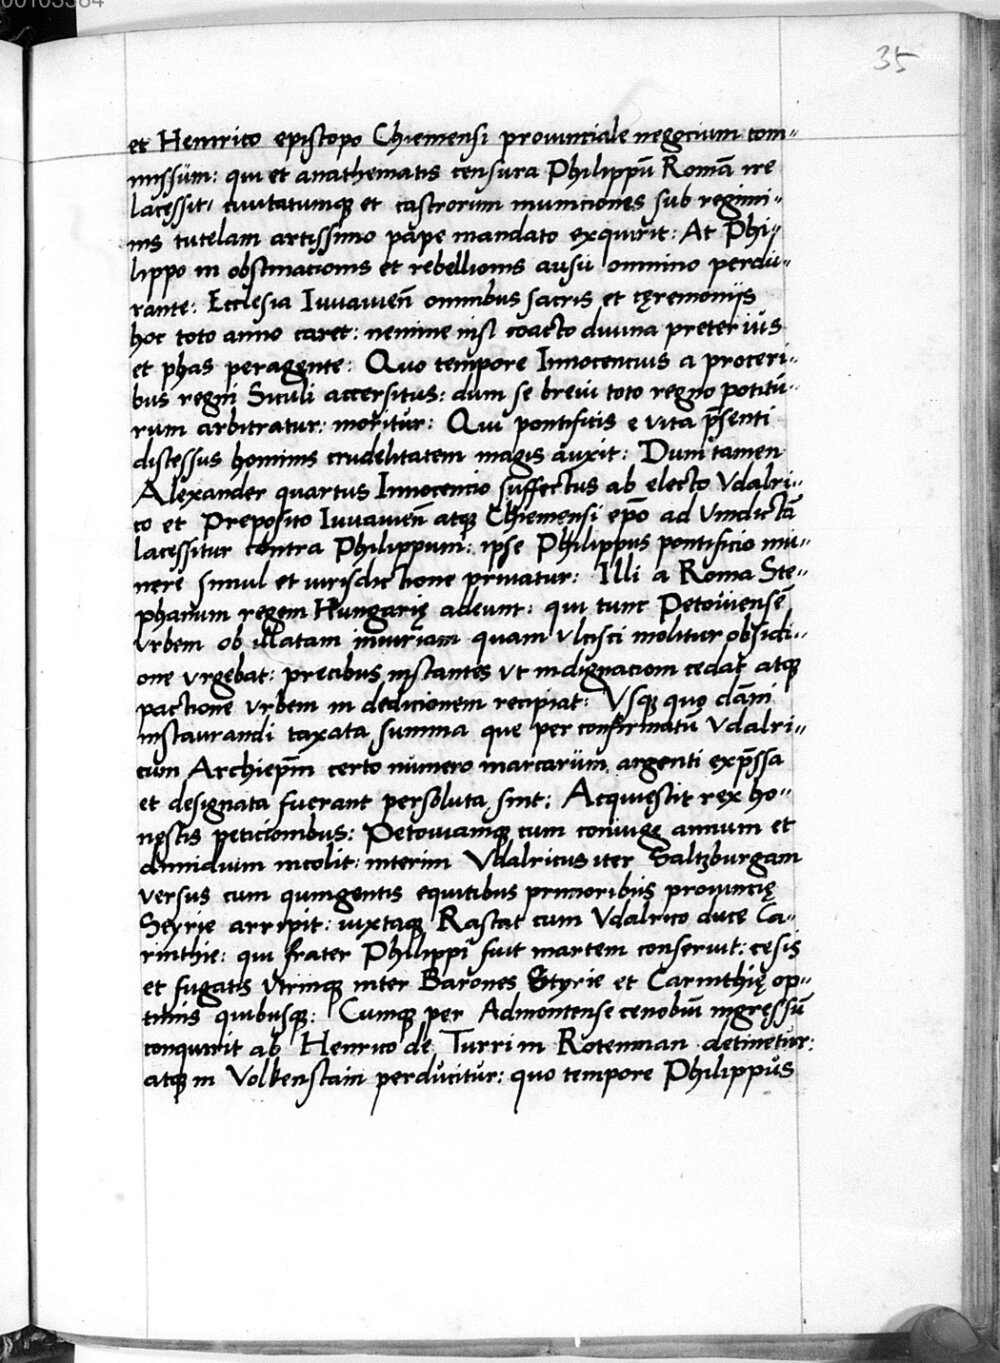 00103384
35
et Henrico episcopo Chiemensi prouinciale negocium com=
missum: qui et anathematis censura Philippū Romā ire
lacęssit: ciuitatumqꝫ et castrorum municiones sub regimi=
nis tutelam artissimo pape mandato exquirit: At Phi=
lippo in obstinacionis et rebellionis ausu omnino perdu=
rante: Ecclesia Iuuauieñ omnibus sacris et cęremonijs
hoc toto anno caret: nemine nisi coacto diuina preter ius
et phas peragente: Quo tempore Innocencius a proceri=
bus regni Siculi accersitus: dum se breui toto regno potitu=
rum arbitratur: moritur: Qui pontificis e vita p̄senti
discessus hominis crudelitatem magis auxit: Dum tamen
Alexander quartus Innocencio suffectus ab electo Vdalri=
co et Preposito Iuuauieñ atqꝫ Chiemensi ep̄o ad vindictā
lacessitur contra Philippum: ipse Philippus pontificio mu=
nere simul et iurisdictione priuatur: Illi a Roma Ste=
phanum regem Hungarię adeunt: qui tunc Petouiensē
vrbem ob illatam iniuriam quam vlcisci molitur obsidi=
one vrgebat: precibus instantes vt indignaciom cedat atqꝫ
pactione vrbem in dedicionem recipiat: Vsqꝫ quo dāni
instaurandi taxata summa que per confirmatū Vdalri=
cum Archiep̄m certo numero marcarum argenti exp̄ssa
et designata fuerant persoluta sint: Acquiescit rex ho=
nestis peticionibus: Petouiamqꝫ cum coniuge annum et
dimidium incolit: interim Vdalricus iter Saltzburgam
versus cum quingentis equitibus primoribus prouincię
Styrie arripit: iuxtaqꝫ Rastat cum Vdalrico duce Ca=
rinthie: qui frater Philippi fuit martem conseruit: cesis
et fugatis vtrinqꝫ inter Barones Styrie et Carinthię op=
timis quibusqꝫ: Cumqꝫ per Admontense cenobiū ingressū
conquirit ab Henrico de Turri in Rotenman detinetur:
atqꝫ in Volkenstain perducitur: quo tempore Philippus